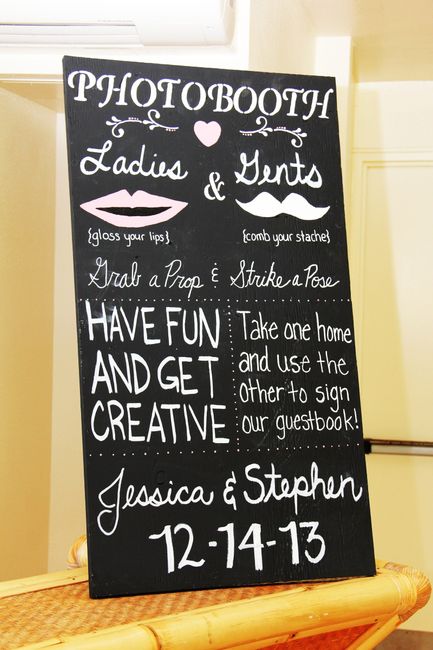 PHOTOBOOTH
Ladies & Gents
{gloss your lips} {comb your stache}
Grab a Prop & Strike a Pose
HAVE FUN
AND GET
CREATIVE
Take one home
and use the
other to sign
our guestbook!
Jessica & Stephen
12-14-13